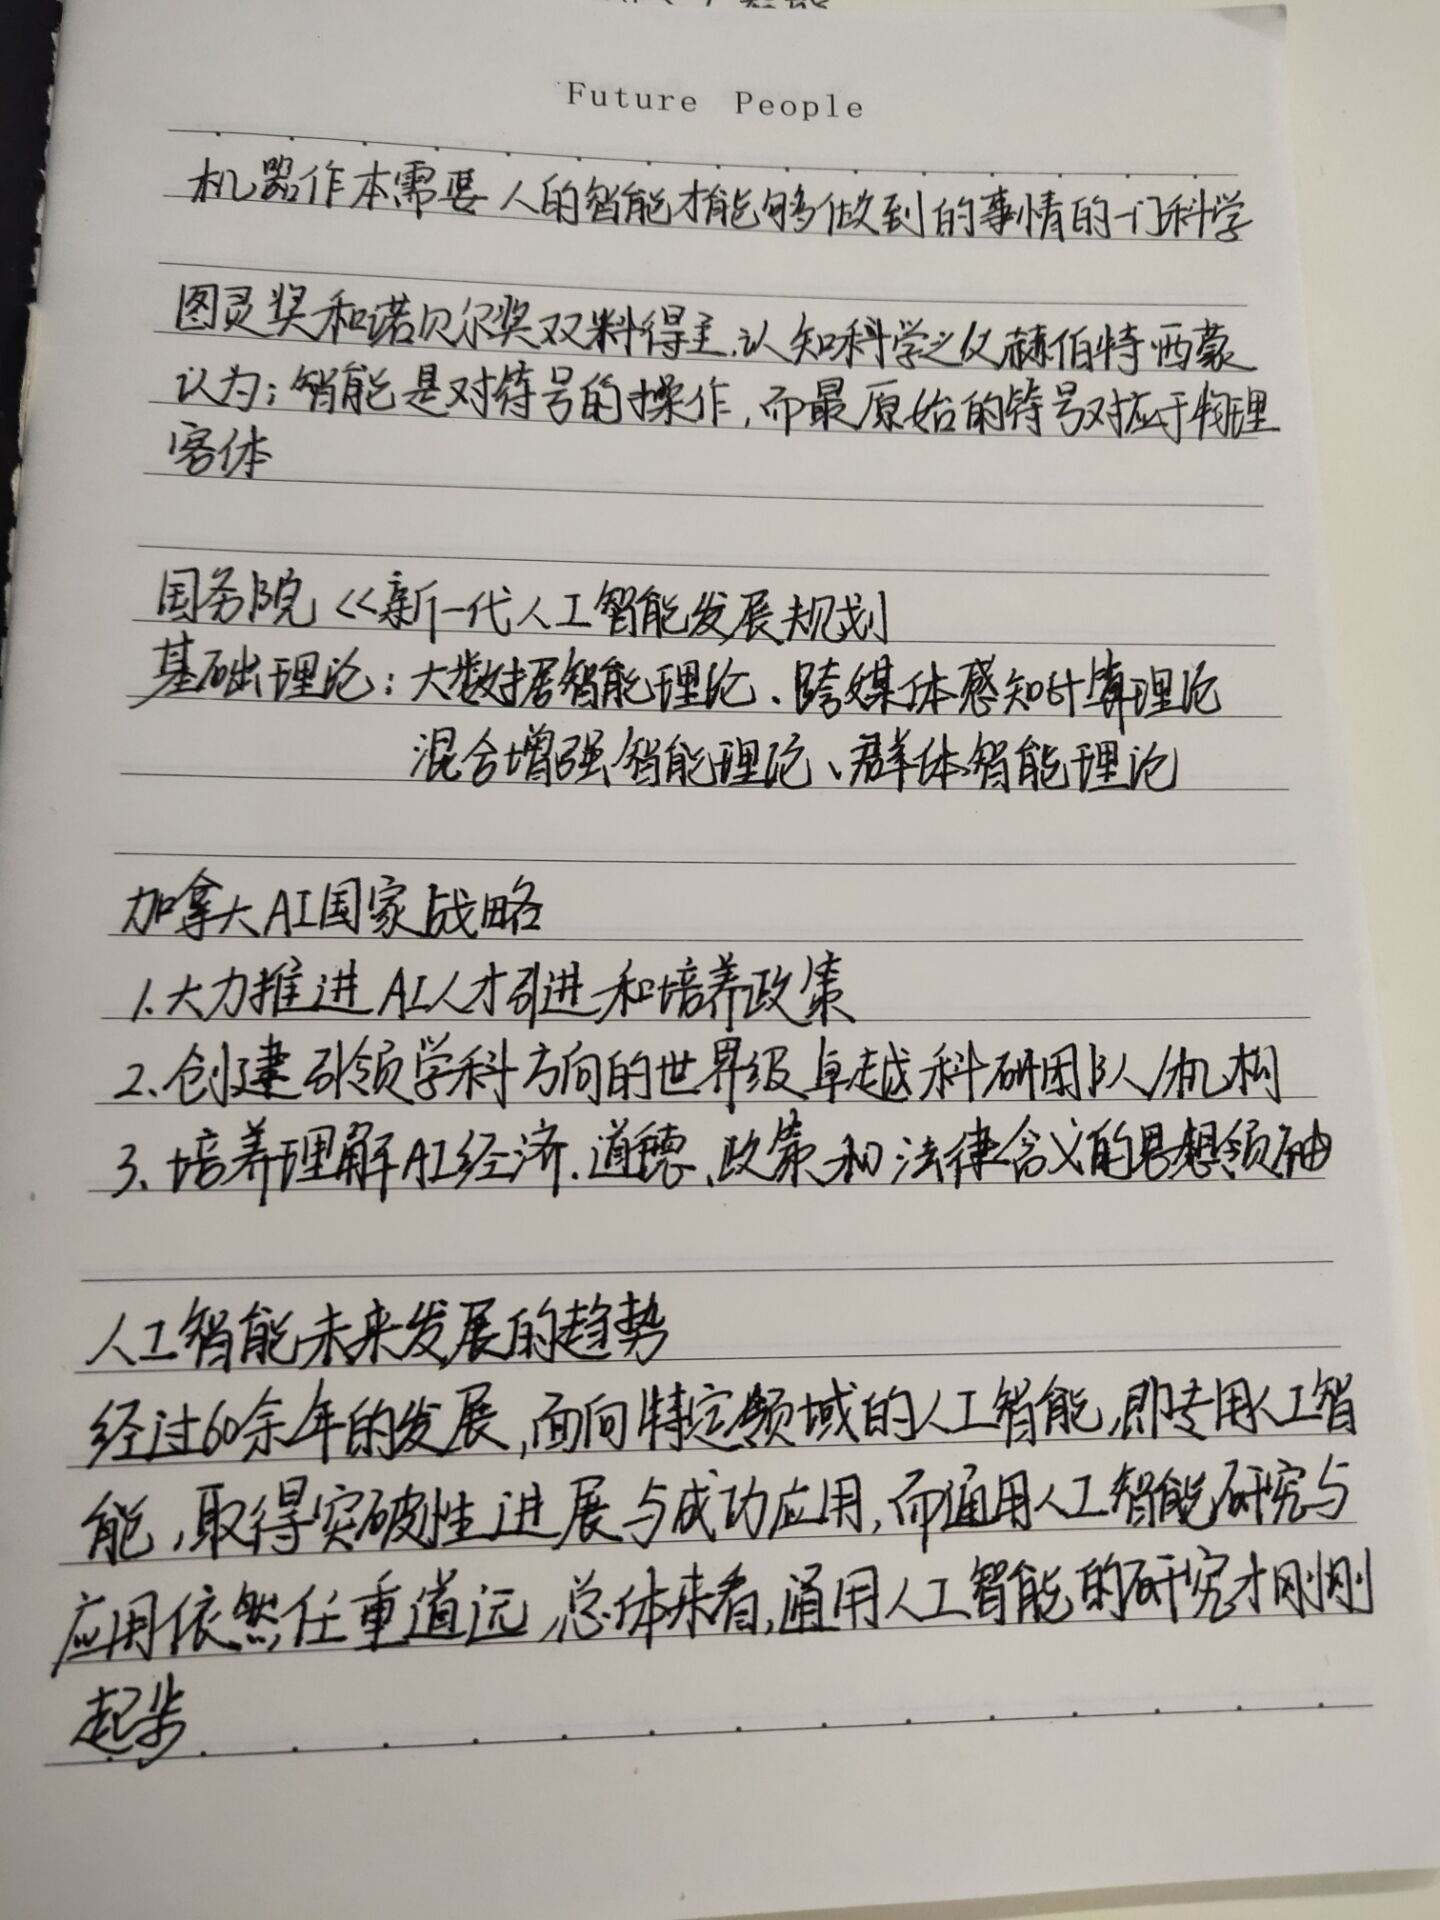 Future People
机器作本需要人的智能才能够做到的事情的一门科学
图灵奖和诺贝尔奖双料得主、认知科学之仪赫伯特西蒙
认为：智能是对符号的操作，而最原始的符号对应于物理
客体
国务院《新一代人工智能发展规划
基础理论：大数据智能理论、跨媒体感知计算理论
混合增强智能理论、群体智能理论
加拿大AI国家战略
1.大力推进AI人才引进和培养政策
2、创建引领学科方向的世界级卓越科研团队/机构
3、培养理解AI经济、道德、政策和法律含义的思想领袖
人工智能未来发展的趋势
经过60余年的发展，面向特定领域的人工智能，即专用人工智
能，取得突破性进展与成功应用，而通用人工智能研究与
应用依然任重道远，总体来看，通用人工智能的研究才刚刚
起步